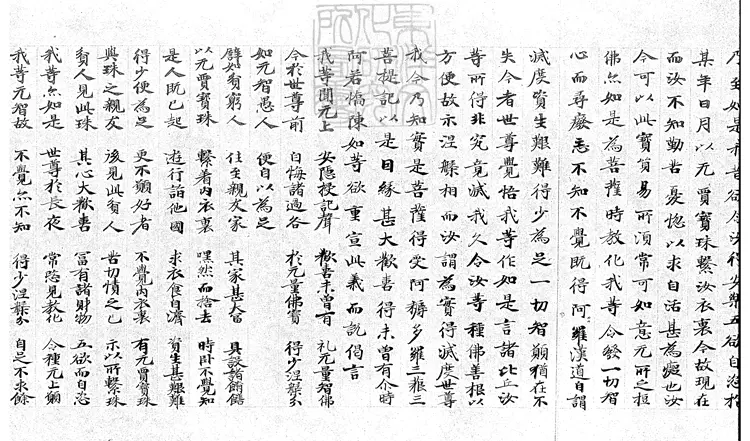 乃至如是我昔欲令汝得安樂五欲自恣於
某年日月以无賈寶珠繫汝衣裏今故現在
而汝不知勤苦憂惱以求自活甚為癡也汝
今可以此寶貿易所須常可如意无所乏短
佛亦如是為菩薩時教化我等令發一切智
心而尋廢忘不知不覺既得阿羅漢道自謂
滅度資生艱難得少為足一切智願猶在不
失今者世尊覺悟我等作如是言諸比丘汝
等所得非究竟滅我久令汝等種佛善根以
方便故示涅槃相而汝謂為實得滅度世尊
我今乃知實是菩薩得受阿耨多羅三藐三
菩提記以是因緣甚大歡喜得未曾有尒時
阿若憍陳如等欲重宣此義而說偈言
我等聞无上 安隱授記聲 歡喜未曾有 礼无量智佛
今於世尊前 自悔諸過咎 於无量佛寶 得少涅槃分
如无智愚人 便自以為足
譬如貧窮人 往至親友家 其家甚大富 具設諸餚饍
以无賈寶珠 繫著內衣裏 嘿然而捨去 時卧不覺知
是人既已起 遊行詣他國 求衣食自濟 資生甚艱難
得少便為足 更不願好者 不覺內衣裏 有无賈寶珠
與珠之親友 後見此貧人 苦切責之已 示以所繫珠
貧人見此珠 其心大歡喜 富有諸財物 五欲而自恣
我等亦如是 世尊於長夜 常愍見教化 令種无上願
我等无智故 不覺亦不知 得少涅槃分 自足不求餘